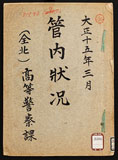 大正十五年三月
管内狀况
(全北)高等警察課